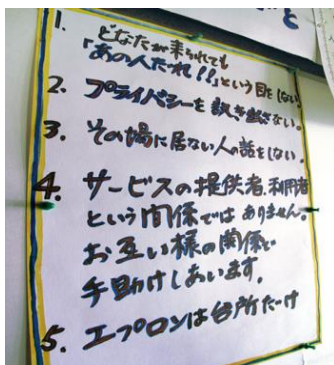 1. どなたが来られても
「あの人だれ!!」という目をしない。
2. プライバシーを訊き出さない。
3. その場に居ない人の話をしない。
4. サービスの提供者、利用者
という関係ではありません。
お互い様の関係で
手助けしあいます。
5. エプロンは台所だけ